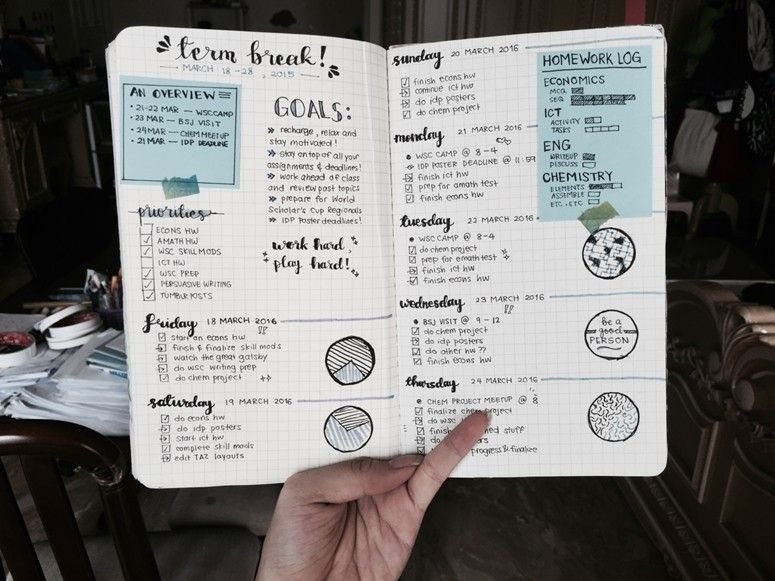 term break!
MARCH 18-28, 2015
AN OVERVIEW
• 21-22 MAR — WSC CAMP
• 23 MAR — BSJ VISIT
• 24 MAR — CHEM MEETUP
• 21 MAR — IDP DEADLINE
GOALS:
» recharge, relax and
stay motivated!
» stay on top of all your
assignments & deadlines!
» work ahead of class
and review past topics
» prepare for World
Scholar's Cup Regionals
» IDP poster deadlines!
work hard,
play hard!
priorities
ECONS HW
AMATH HW
WSC SKILL MODS
ICT HW
WSC PREP
PERSUASIVE WRITING
TUMBLR POSTS
friday 18 MARCH 2016
start on econs hw
finish & finalize skill mods
watch the great gatsby
do wsc writing prep
do chem project
saturday 19 MARCH 2016
do econs hw
do idp posters
start ict hw
complete skill mods
edit TAZ layouts
sunday 20 MARCH 2016
finish econs hw
continue ict hw
do idp posters
do chem project
monday 21 MARCH 2016
• WSC CAMP @ 8-4
IDP POSTER DEADLINE @ 11:59
finish ict hw
prep for amath test
finish econs hw
tuesday 22 MARCH 2016
• WSC CAMP @ 8-4
do chem project
prep for emath test
finish ict hw
finish econs hw
wednesday 23 MARCH 2016
• BSJ VISIT @ 9-12
do chem project
do idp posters
do other hw ??
finish econs hw
thursday 24 MARCH 2016
• CHEM PROJECT MEETUP @ 8
finalize chem project
do wsc
finish stuff
do
progress & finalize
HOMEWORK LOG
ECONOMICS
MCQ
SEQ
ICT
ACTIVITY
TASKS
ENG
WRITEUP
DISCUSS
CHEMISTRY
ELEMENTS
ASSEMBLE
ETC. ETC
be a
good
PERSON